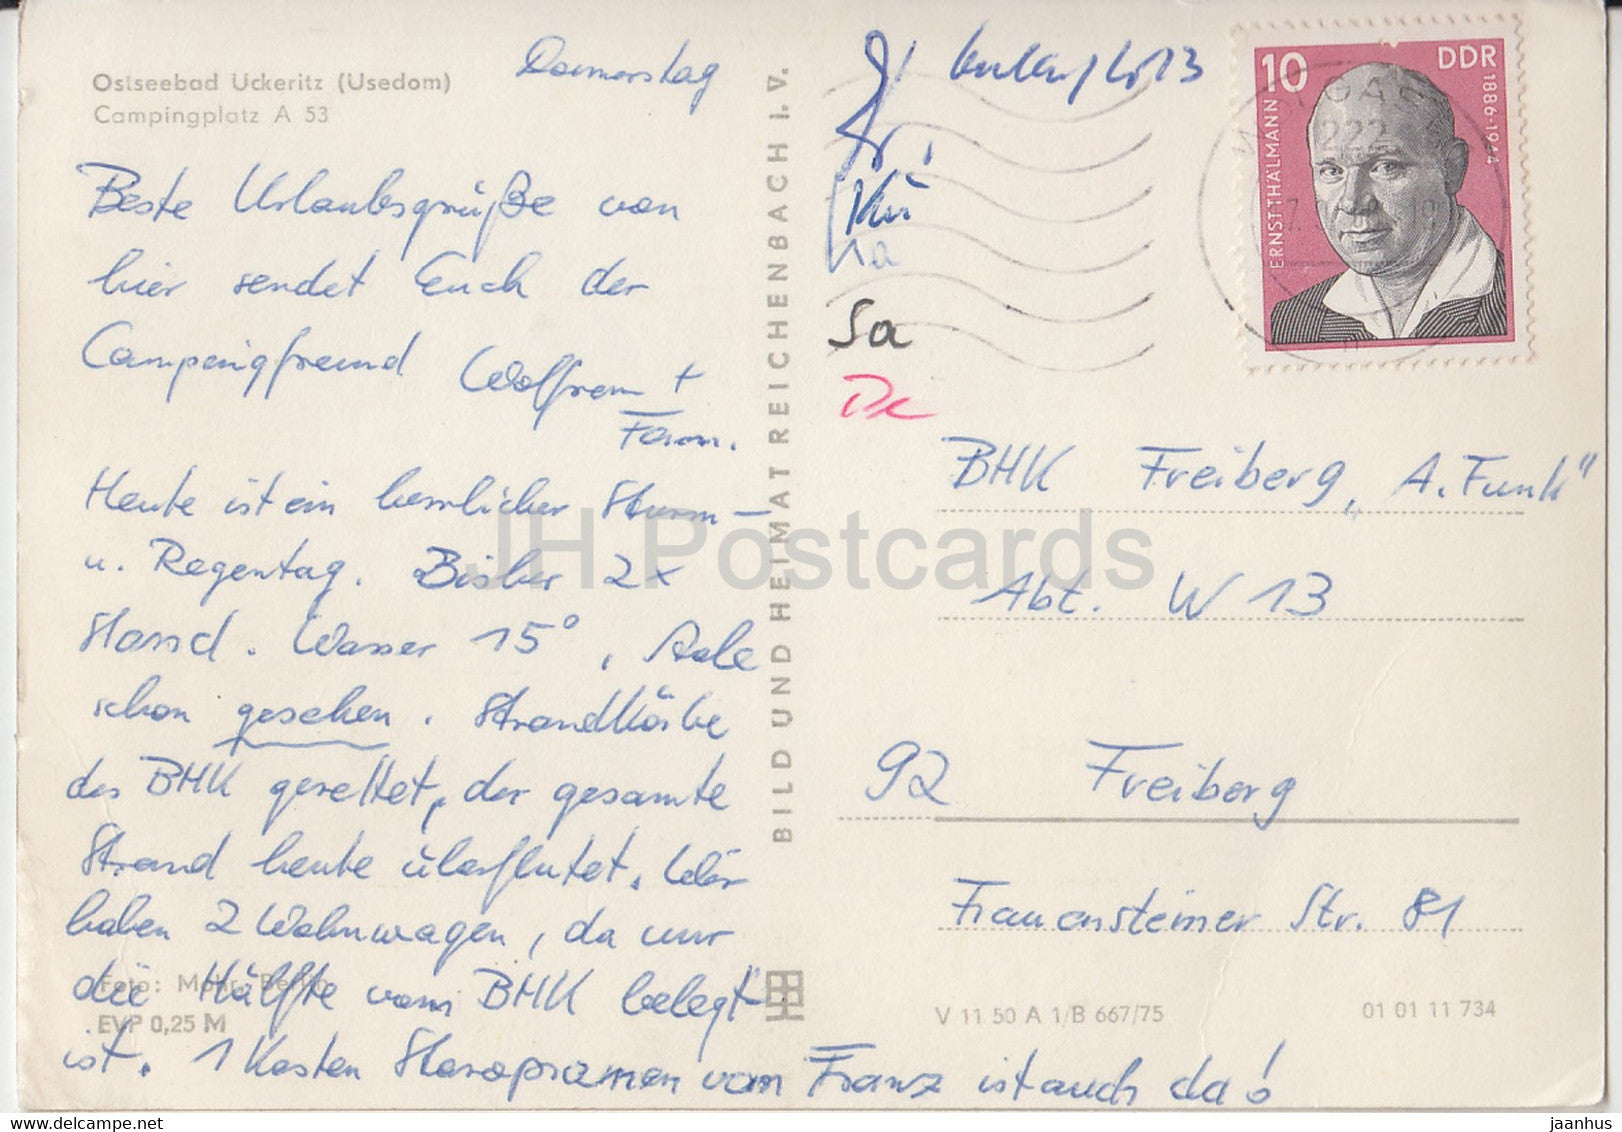 Ostseebad Uckeritz (Usedom)
Campingplatz A 53
Donnerstag
Beste Urlaubsgrüße von
hier sendet Euch der
Campingfreund Wolfram +
Fam.
Heute ist ein herrlicher Sturm-
u. Regentag. Bisher 2x
Wasser 15°, Aale
schon gesehen. Strandkörbe
des BHK gerettet, der gesamte
Strand heute überflutet. Wir
haben 2 Wohnwagen, da nur
die Hälfte vom BHK belegt
ist. 1 Kasten vom Franz ist auch da!
Foto: Mohr, Berlin
EVP 0,25 M
BILD UND HEIMAT REICHENBACH I. V.
Sa
10 DDR
ERNST THÄLMANN
1886-1944
WOLGAST
222
BHK Freiberg „A. Funk"
Abt. W 13
92 Freiberg
Frauensteiner Str. 81
V 11 50 A 1/B 667/75
01 01 11 734
JH Postcards
www.delcampe.net
jaanhus